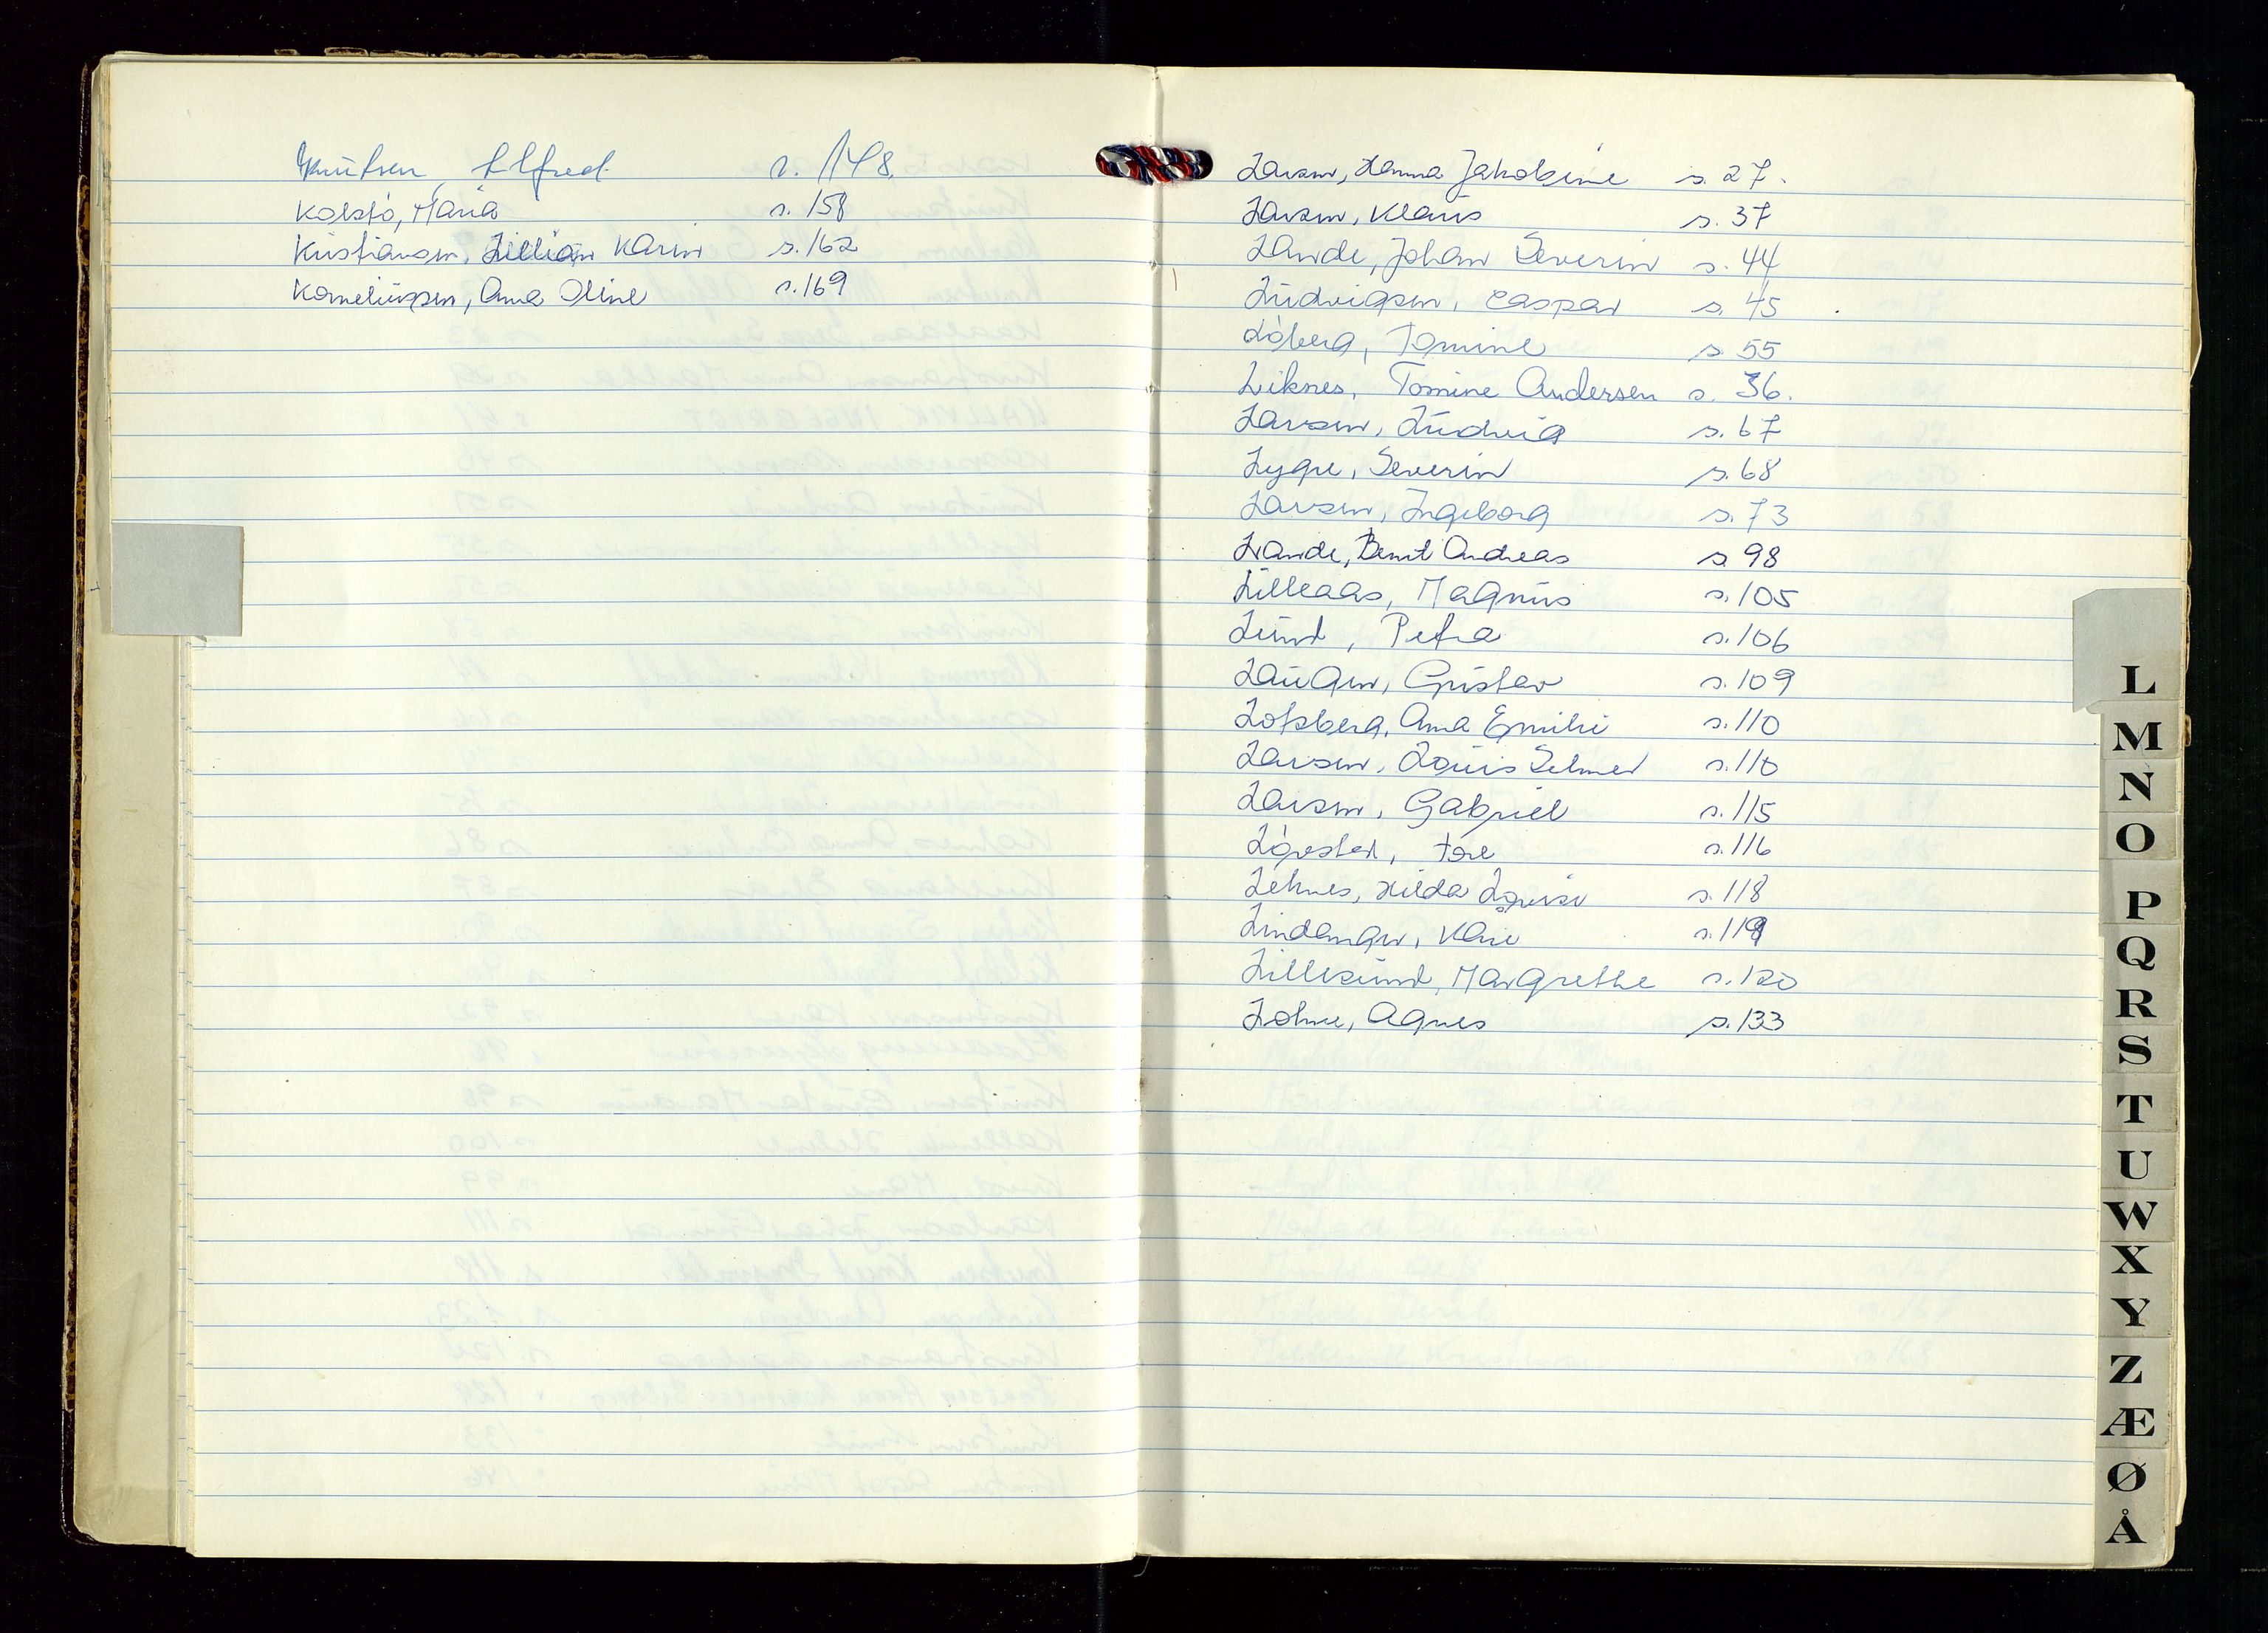 Knutsen, Alfred s. 148.
Kolstö, Maria s. 158
Kristiansen, Lillian Karin s. 162
Korneliussen, Anna Oline s. 169
Larsen, Hanna Jakobine s. 27.
Larsen, Klaus s. 37
Lande, Johan Severin s. 44
Ludvigsen, Caspar s. 45
Löberg, Tomine s. 55
Liknes, Tomine Andersen s. 36.
Larsen, Ludvig s. 67
Lygre, Severin s. 68
Larsen, Ingeborg s. 73
Lande, Bernt Andreas s. 98
Lilleaas, Magnus s. 105
Lund, Petra s. 106
Laugen, Gustav s. 109
Lotsberg, Anna Emilie s. 110
Larsen, Louis Selmer s. 110
Larsen, Gabriel s. 115
Lövstad, Tore s. 116
Leknes, Hilda Lovise s. 118
Lindanger, Kari s. 119
Lillesund, Margrethe s. 120
Lohne, Agnes s. 133
L
M
N
O
P
Q
R
S
T
U
W
X
Y
Z
Æ
Ø
Å